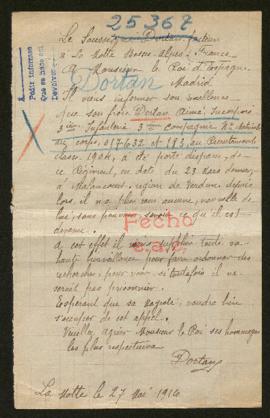 25367
Le Soussigné Dortan facteur
à La Motte Basses-Alpes, France
A Monsieur le Roi d'Espagne
Dortan
Madrid
Il vient informer son excellence
que son frère Dortan, Aimé
3me Infanterie 3me Compagnie No
au corps, 17632 et 183, au Recrutement
classe 1906, a été porté disparu, de
ce Régiment, en date du 23 mars dernier,
à Malancourt, région de Verdun, depuis
lors, il n'a plus eu aucune nouvelle de
lui, sans pouvoir savoir ce qu'il est
devenu.
Fecho
A cet effet il vous
haute bienveillance pour faire ordonner des
recherches, pour voir si toutefois il ne
serait pas prisonnier.
Espérant que sa Majesté, voudra bien
s'occuper de cet appel.
Veuillez agréer Monsieur le Roi ses hommages
les plus respectueux
Dortan
La Motte le 27 Mai 1916